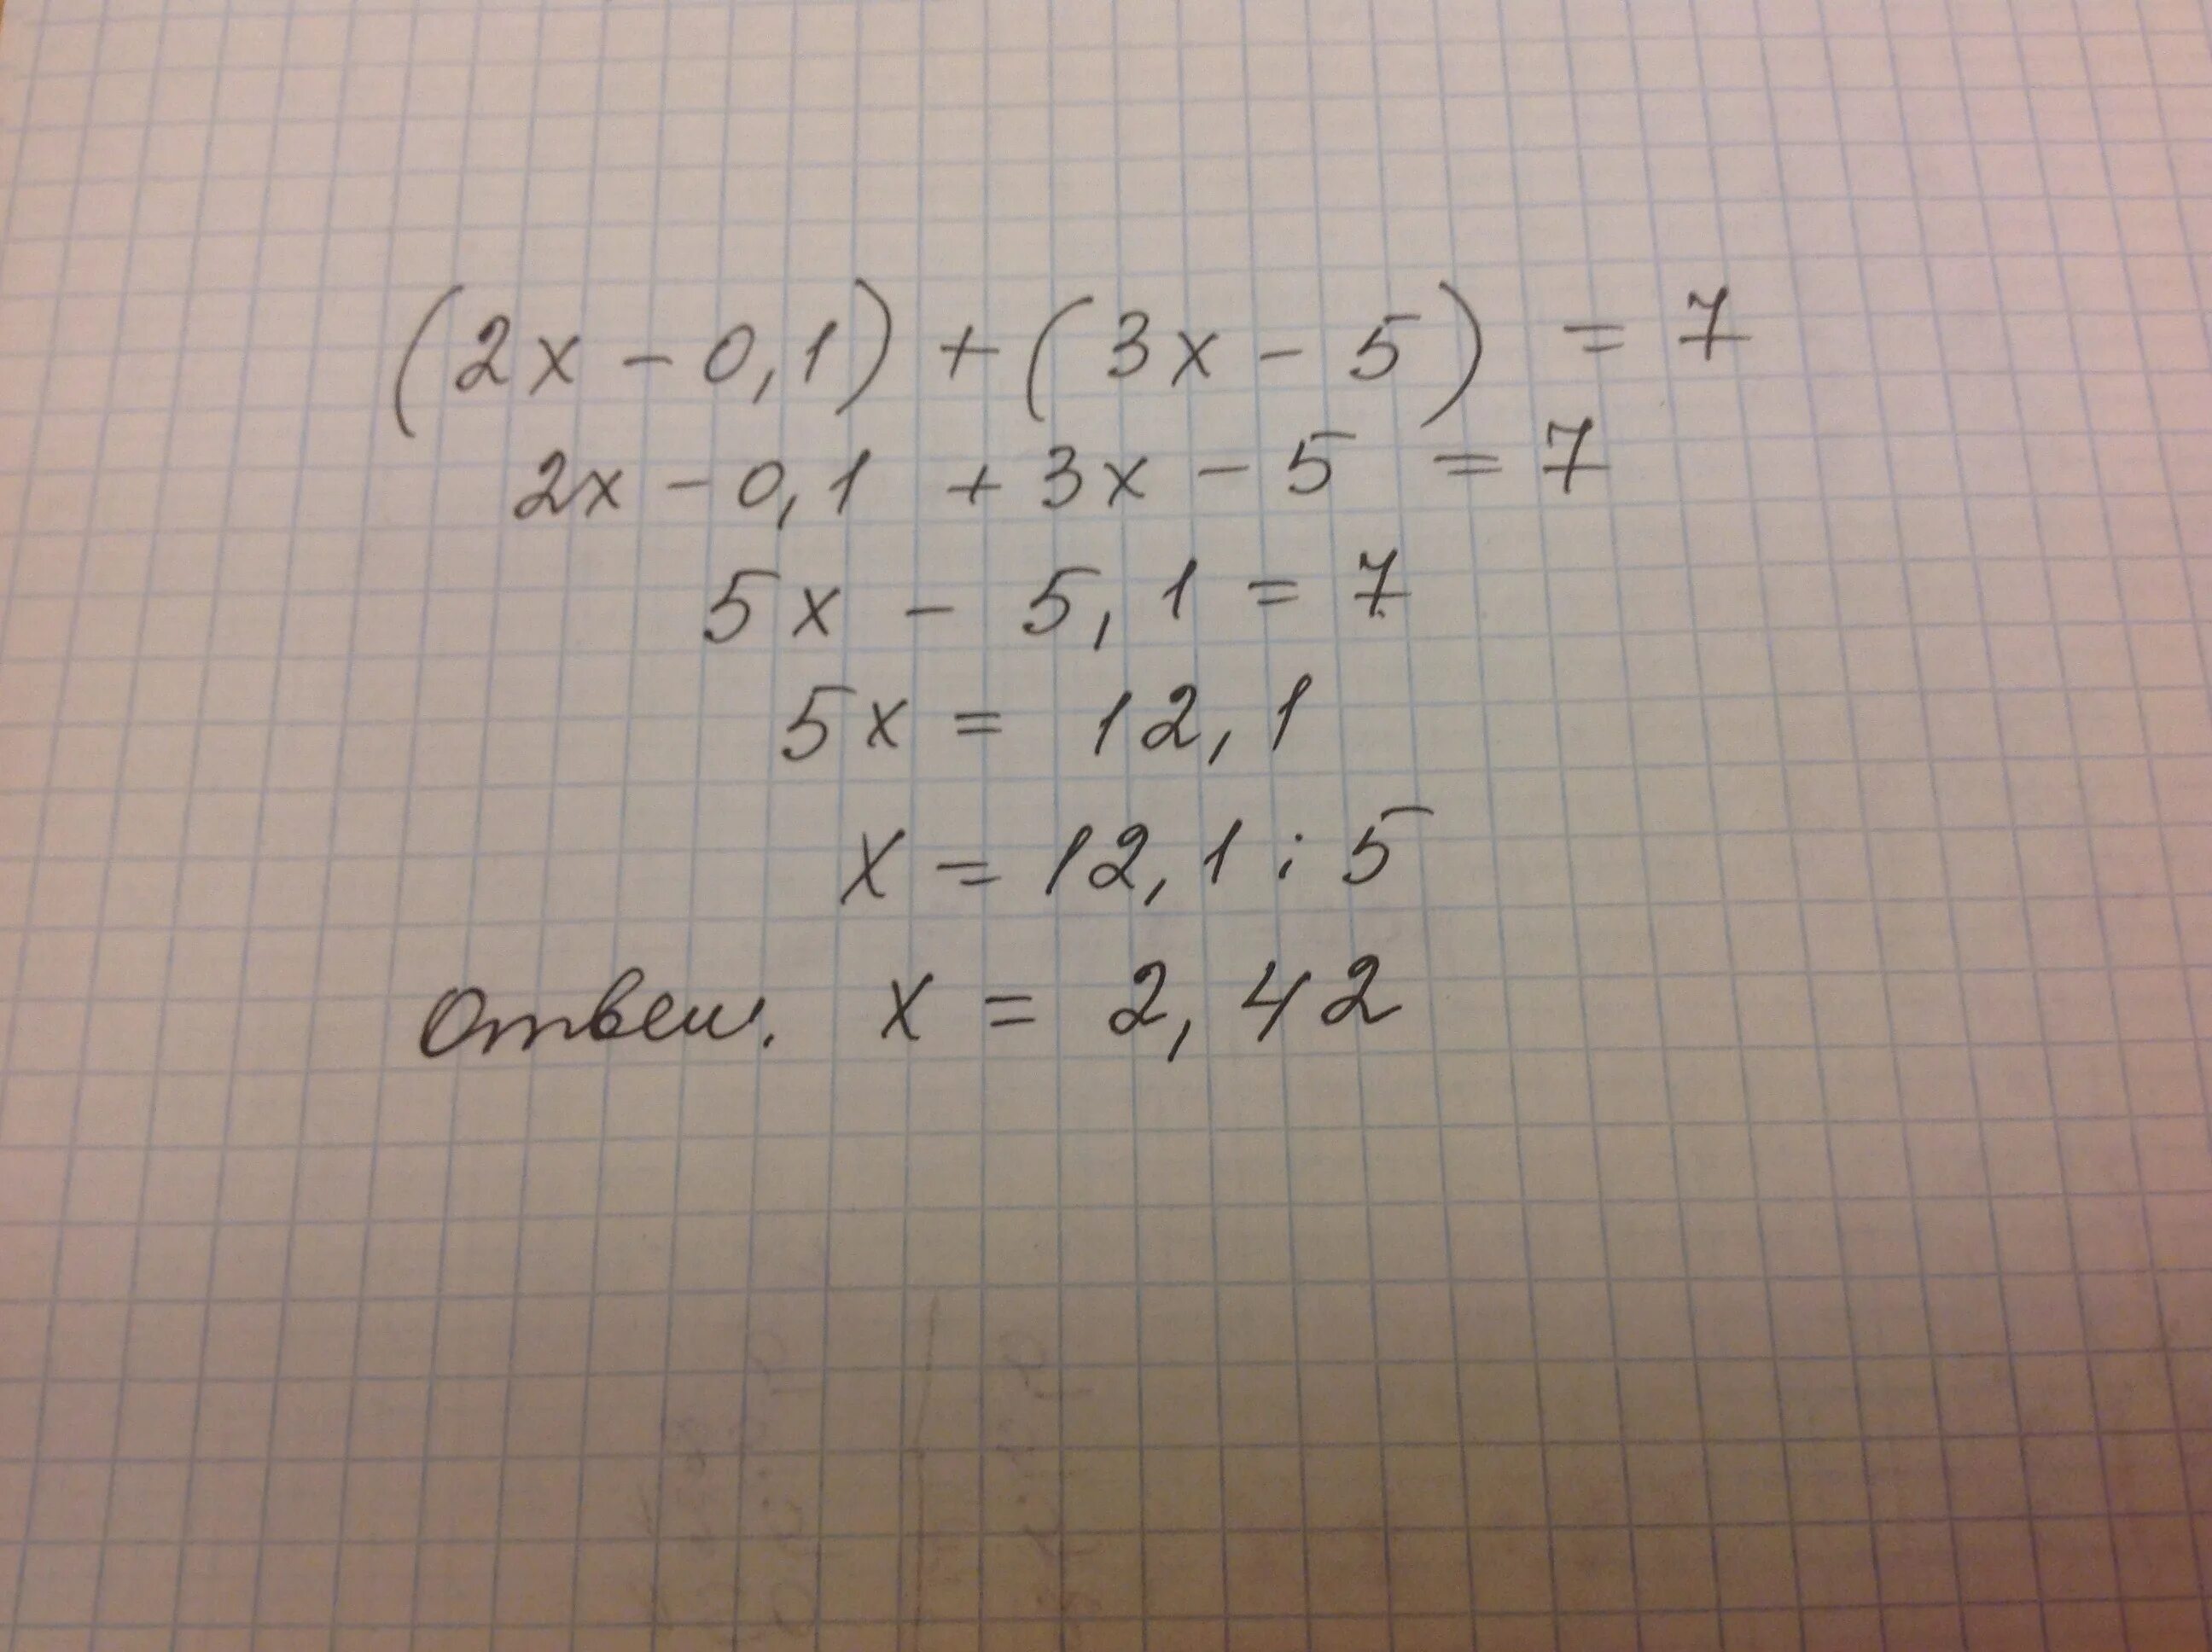 (2x - 0,1) + (3x - 5) = 7
2x - 0,1 + 3x - 5 = 7
5x - 5,1 = 7
5x = 12,1
x = 12,1 : 5
Ответ. x = 2,42